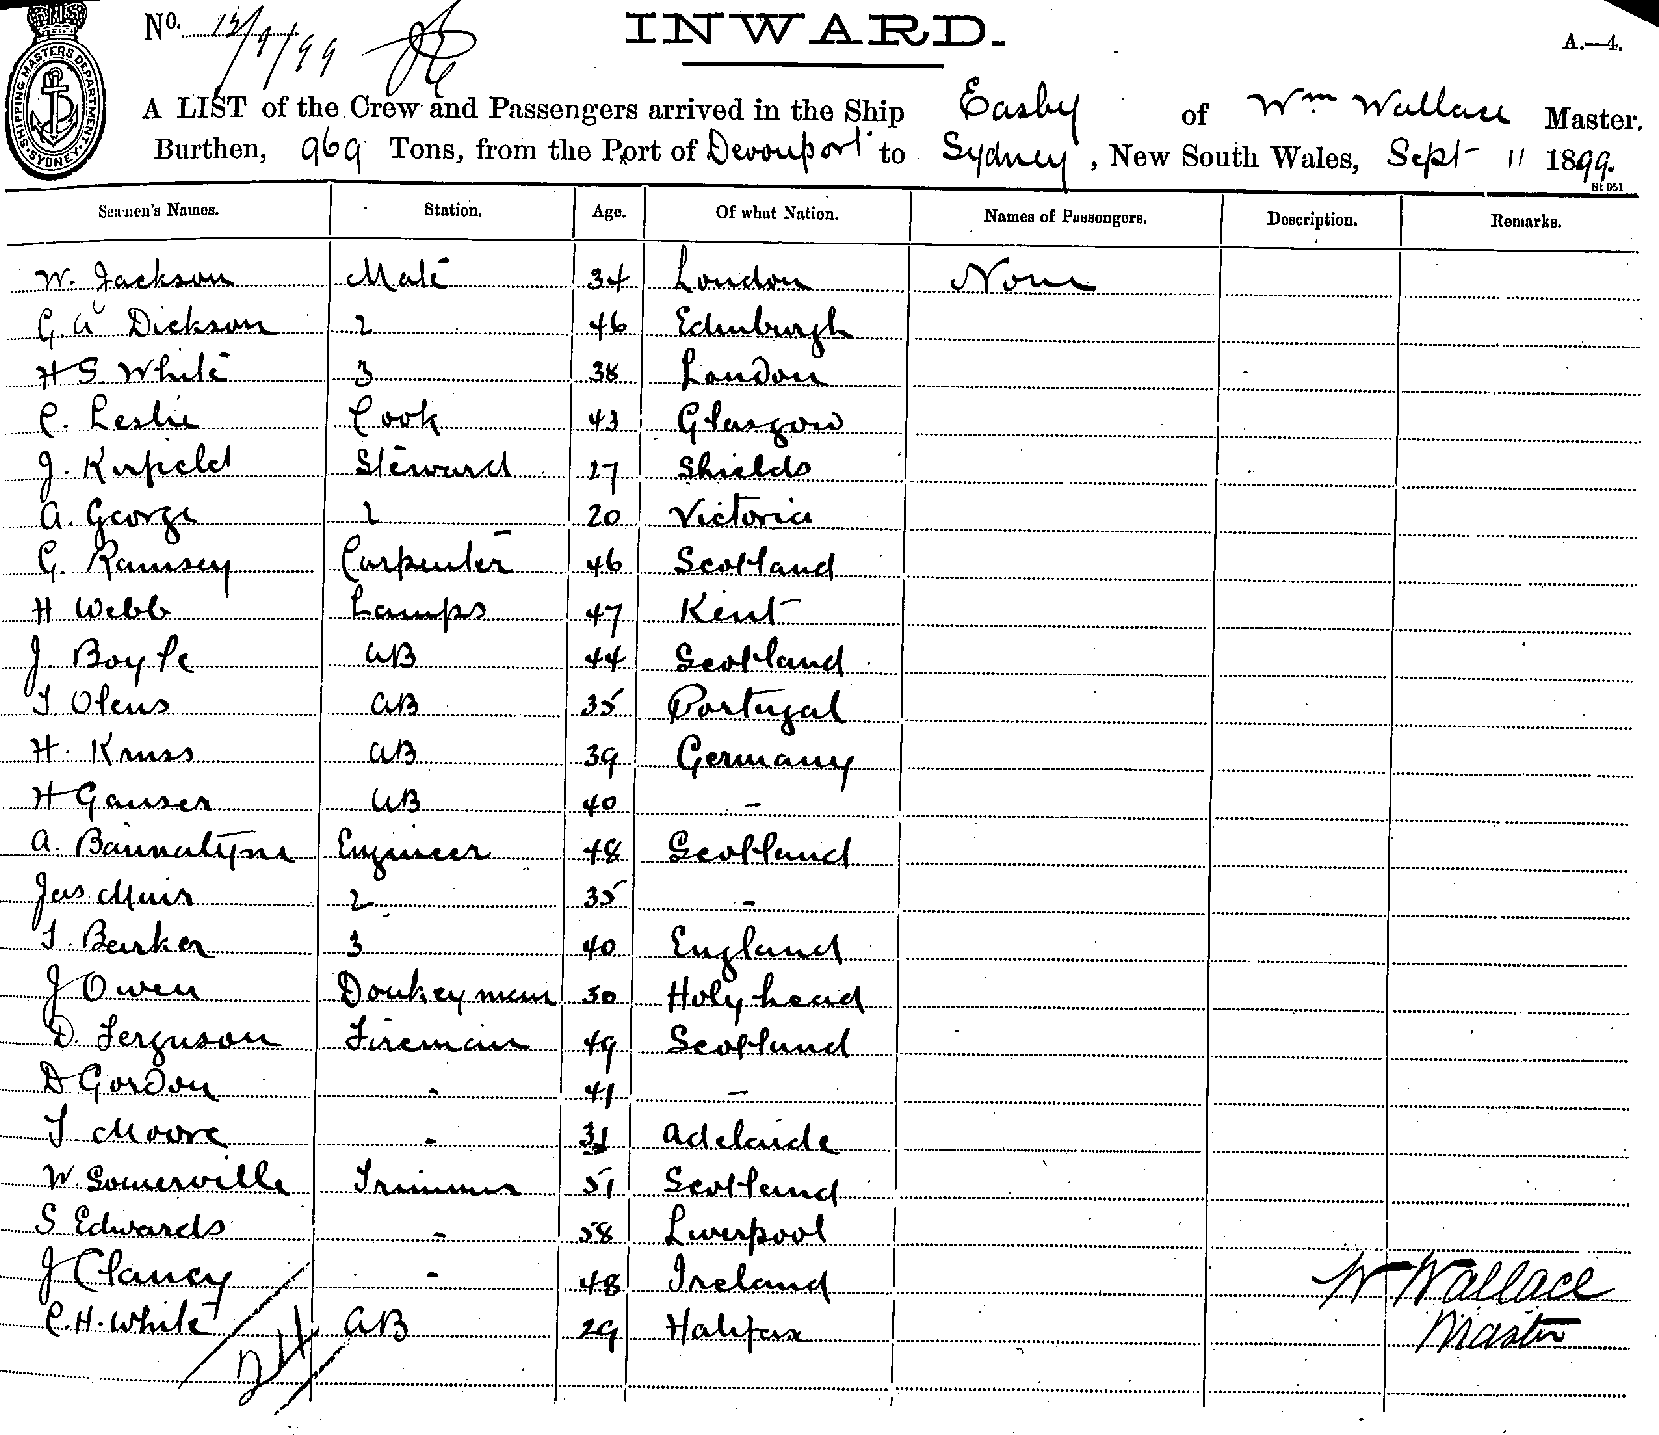 No. 12/9/99
INWARD.
A.—4.
SHIPPING MASTERS DEPARTMENT. SYDNEY.
A LIST of the Crew and Passengers arrived in the Ship Easby of Wm Wallace Master.
Burthen, 969 Tons, from the Port of Devonport to Sydney, New South Wales, Sept 11 1899.
St 051
Seamen's Names. Station. Age. Of what Nation. Names of Passengers. Description. Remarks.
W. Jackson Mate 34 London None
G. A Dickson 2 46 Edinburgh
H S. White 3 38 London
C. Leslie Cook 43 Glasgow
J. Kirfield Steward 27 Shields
A. George 2 20 Victoria
G. Ramsey Carpenter 46 Scotland
H Webb Lamps 47 Kent
J. Boyle AB 44 Scotland
T Olens AB 35 Portugal
H. Kruss AB 39 Germany
H Ganser AB 40 -
A. Bannatyne Engineer 48 Scotland
Jas Muir 2 35 -
T. Barker 3 40 England
J Owen Donkeyman 50 Holyhead
D. Ferguson Fireman 49 Scotland
D Gordon - 41 -
T Moore - 31 Adelaide
W Somerville Trimmer 51 Scotland
S Edwards - 58 Liverpool
J Clancy - 48 Ireland
C. H. White AB 29 Halifax
24
W Wallace
Master